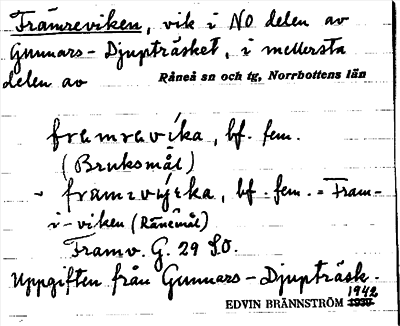 Främreviken, vik i NO delen av
Gunnars-Djupträsket, i mellersta
delen av Råneå sn och tg, Norrbottens län
framravika, bf. fem.
(Bruksmål)
bf. fem. = Fram-
i-viken (Rånemål)
Framv. G. 29 SO.
Uppgiften från Gunnars-Djupträsk.
1942
EDVIN BRÄNNSTRÖM 1930